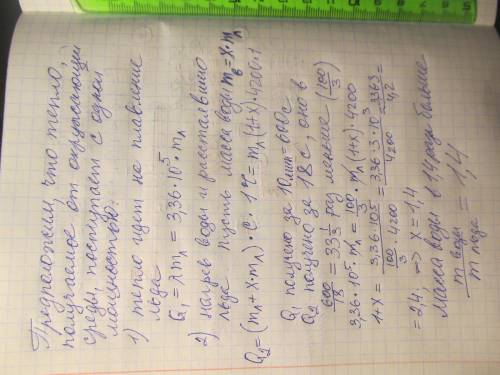 Предположим, что тепло,
получаемое от окружающей
среды, поступает с одной
мощностью.
1) тепло идет на плавление
льда
Q₁ = λmл = 3,36·10⁵·mл
2) нагрев воды и растаявшего
льда. Пусть масса воды mв = x·mл
Q₂ = (mл + x·mл)·c·1°C = mл(1+x)·4200·1
Q₁ получено за 10мин = 600с
Q₂ получено за 18с, оно в
600/18 = 33 1/3 раз меньше (100/3)
3,36·10⁵·mл = 100/3·mл(1+x)·4200
1+x = 3,36·10⁵/(100/3·4200) = 336·3·10³/(4200·10²) = 336·3/(42·10) =
= 2,4 => x = 1,4
Масса воды в 1,4 раза больше
m воды/m льда = 1,4